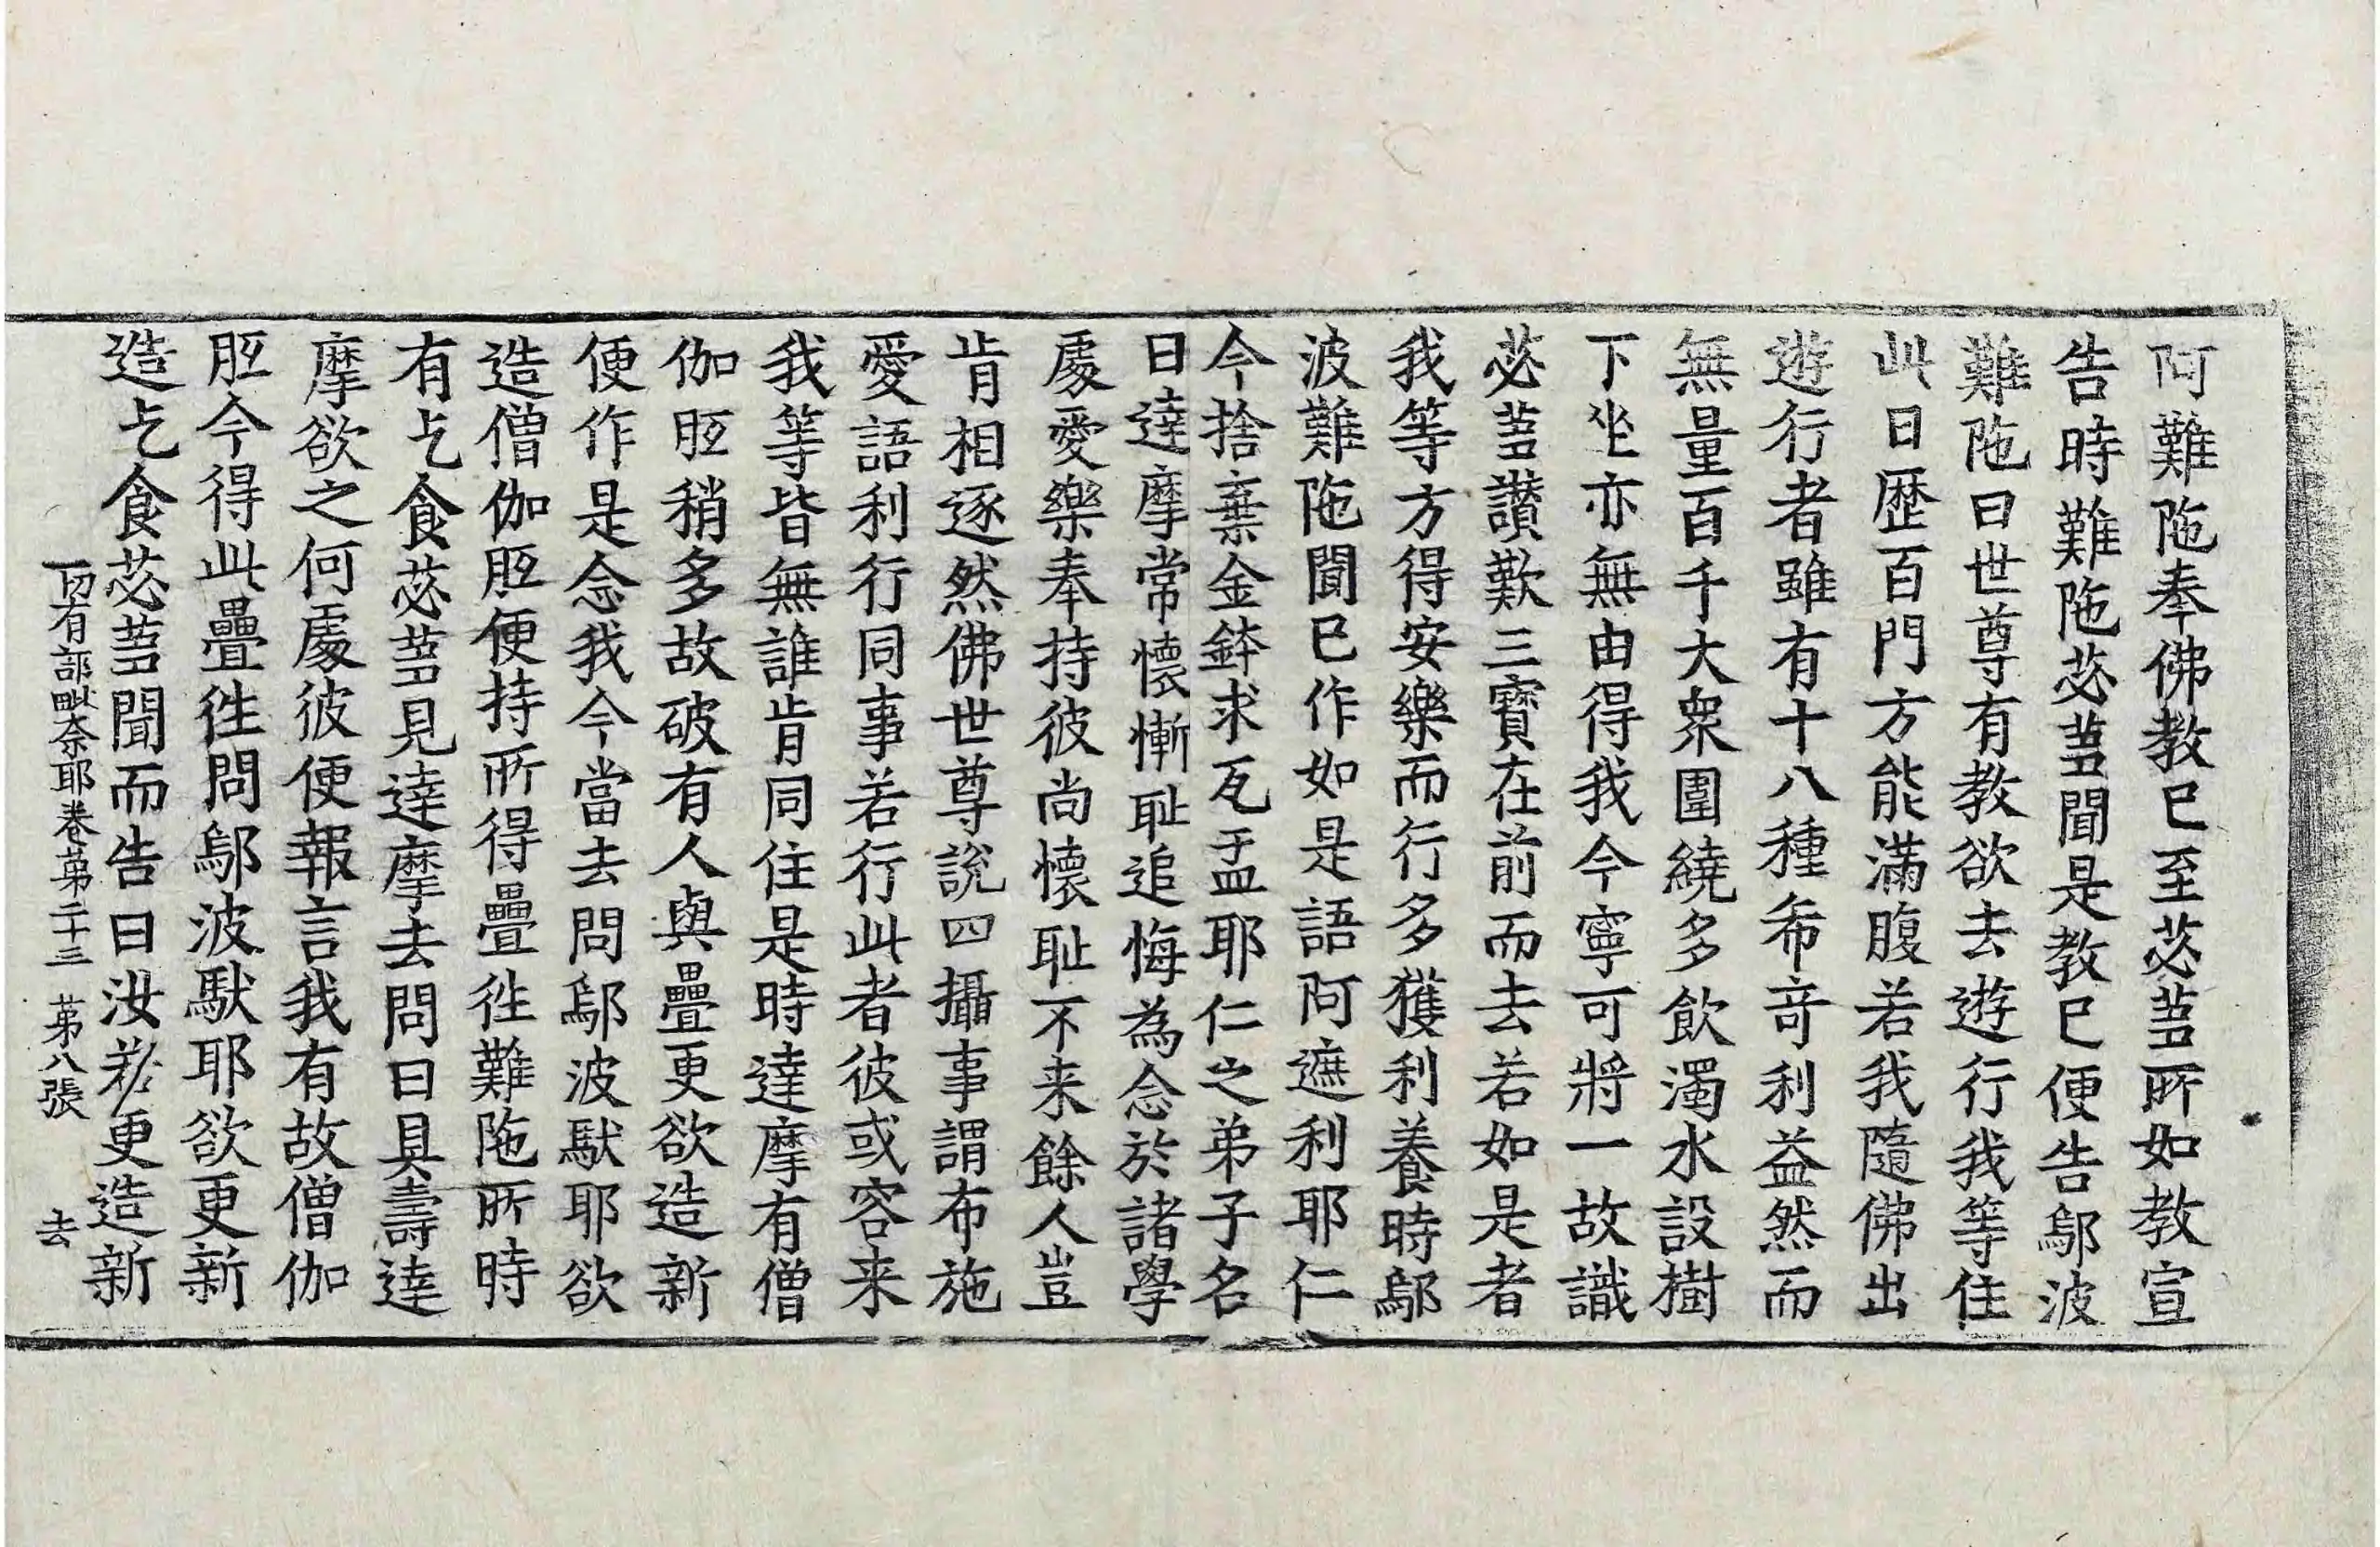 阿難陁奉佛教已至苾蒭所如教宣
告時難陁苾蒭聞是教已便告鄔波
難陁曰世尊有教欲去遊行我等住
此日歴百門方能滿腹若我隨佛出
遊行者雖有十八種希竒利益然而
無量百千大衆圍繞多飲濁水設樹
下坐亦無由得我今寧可將一故識
苾蒭讚歎三寶在前而去若如是者
我等方得安樂而行多獲利養時鄔
波難陁聞已作如是語阿遮利耶仁
今捨棄金鉢求瓦盂耶仁之弟子名
曰達摩常懷慚耻追悔為念於諸學
處愛樂奉持彼尚懷耻不来餘人豈
肯相逐然佛世尊說四攝事謂布施
愛語利行同事若行此者彼或容来
我等皆無誰肯同住是時達摩有僧
伽胝稍多故破有人與疊更欲造新
便作是念我今當去問鄔波馱耶欲
造僧伽胝便持所得疊往難陁所時
有乞食苾蒭見達摩去問曰具壽達
摩欲之何處彼便報言我有故僧伽
胝今得此疊往問鄔波馱耶欲更新
造乞食苾蒭聞而告曰汝若更造新
一切有部毗奈耶卷苐二十三　苐八張　去